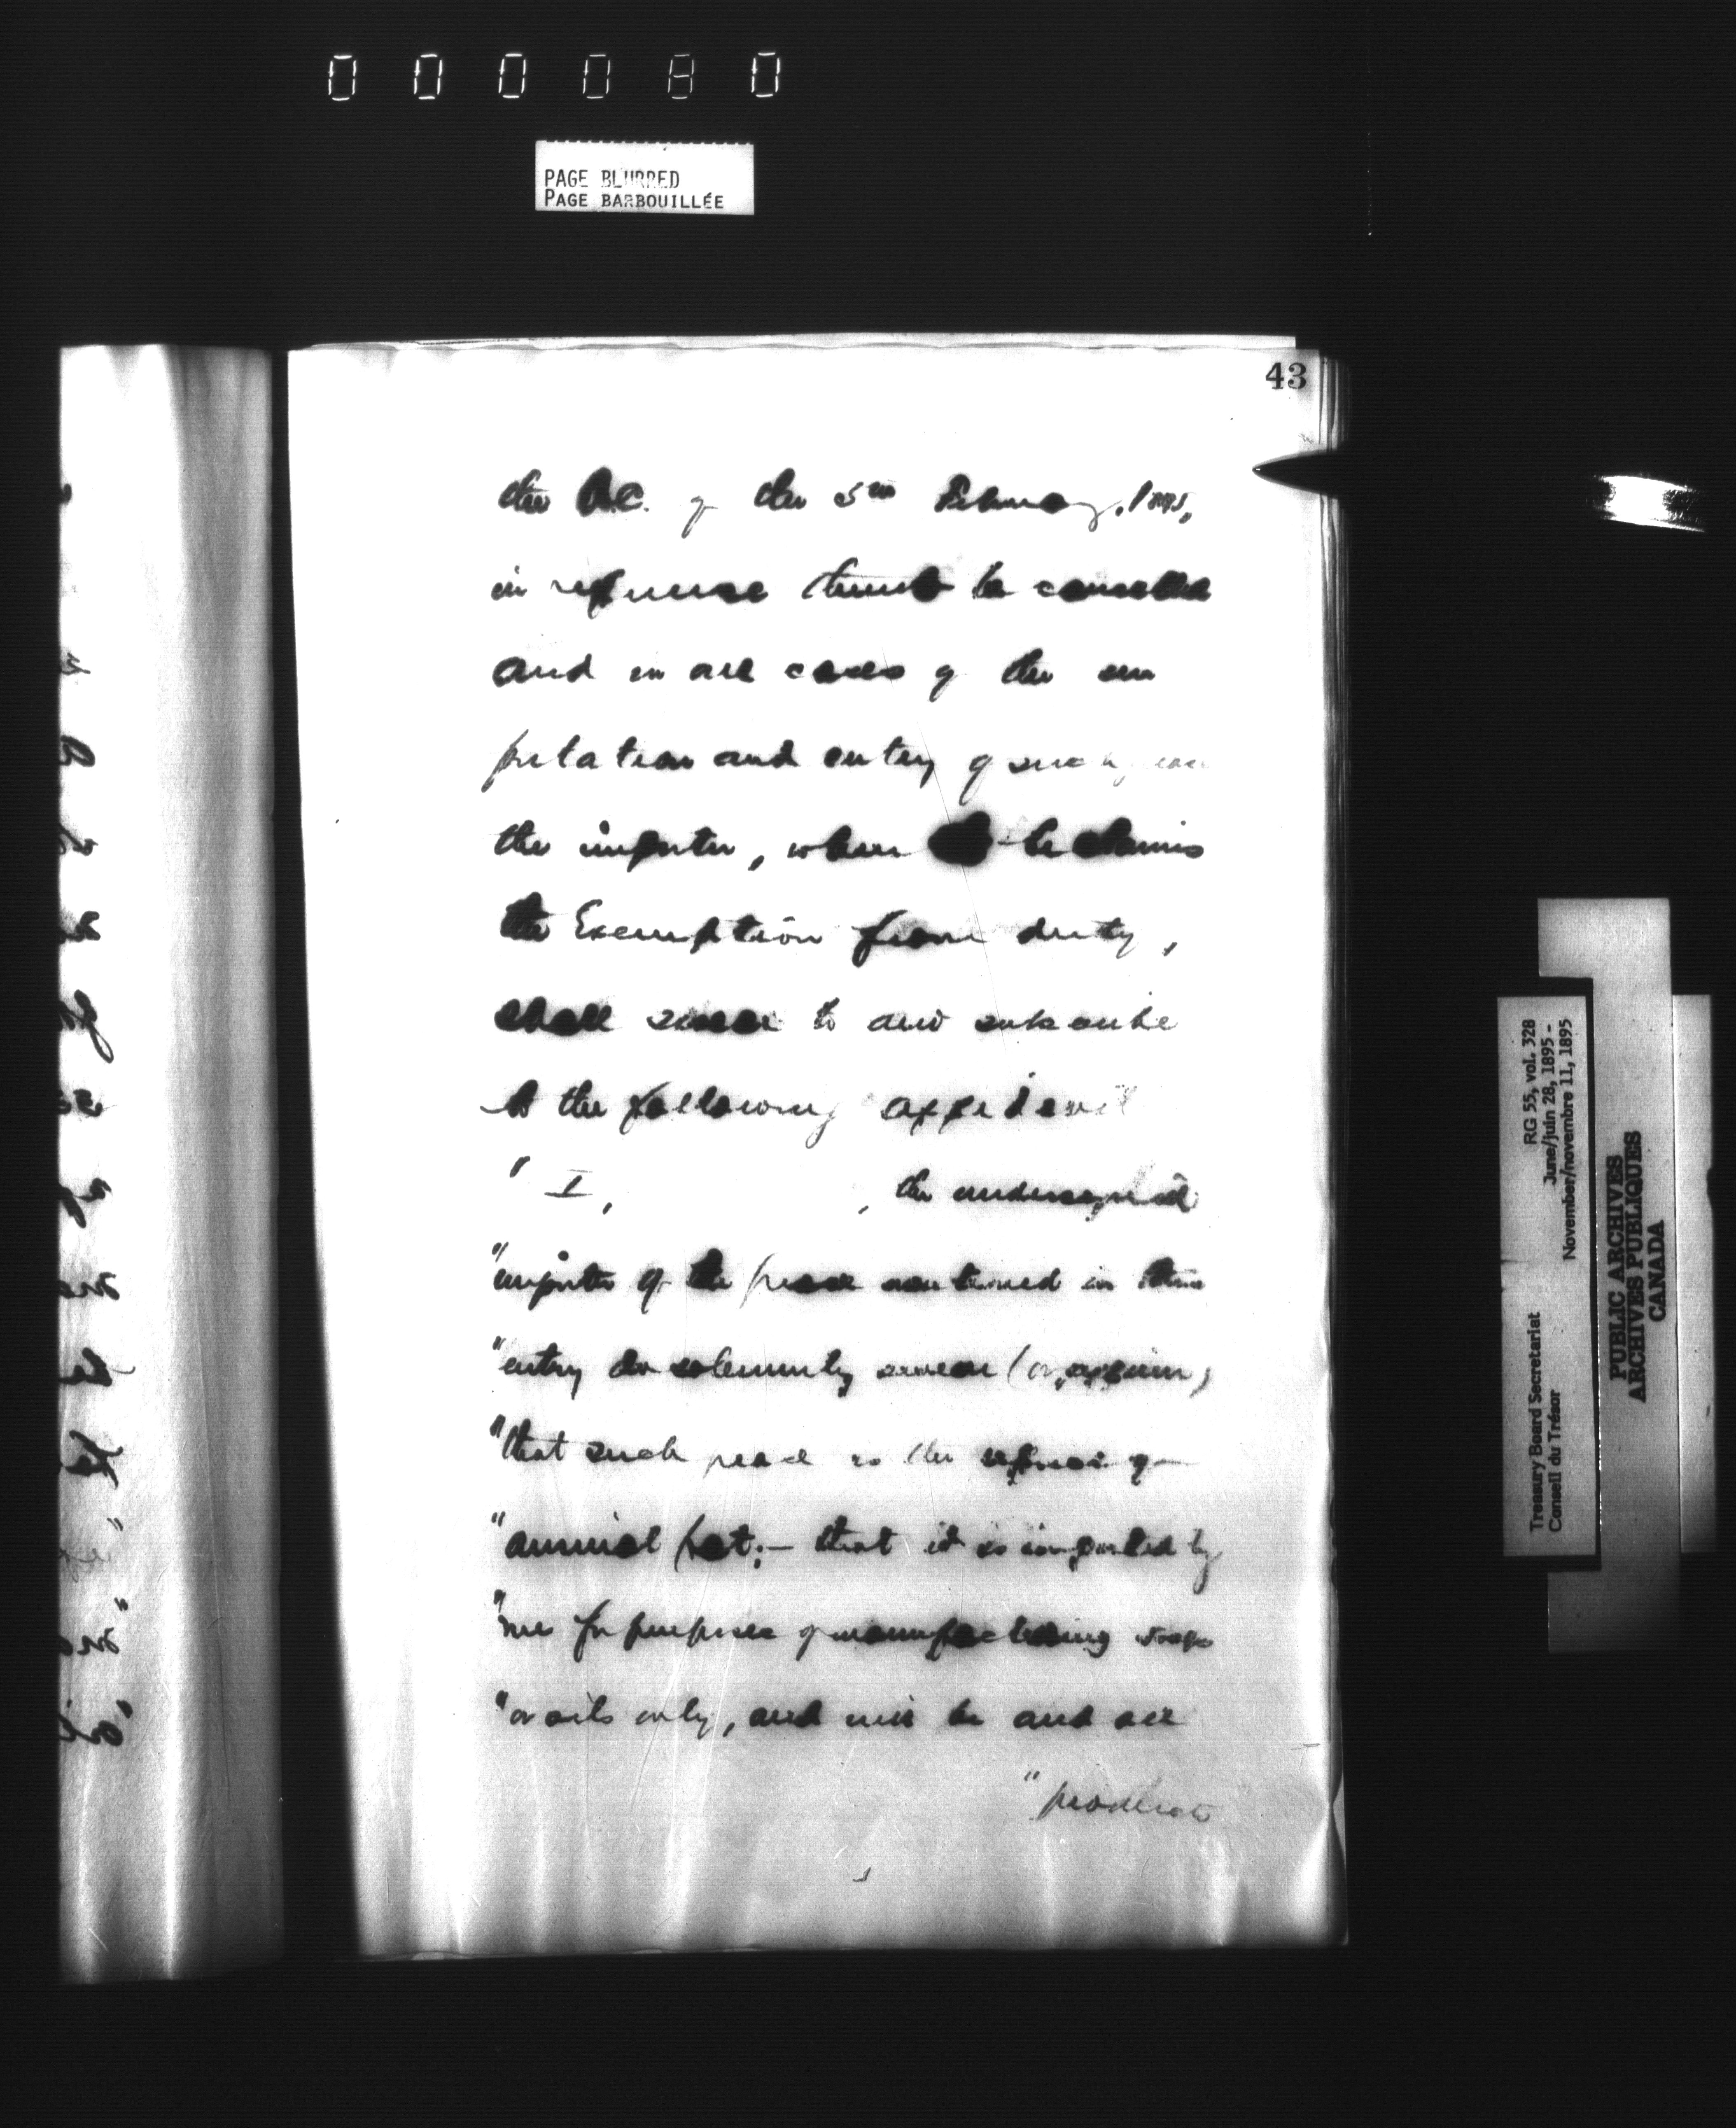 000080
PAGE BLURRED
PAGE BARBOUILLÉE
43
the O.C. of the 5th February, 1895,
in reference thereto be cancelled
and in all cases of the im
portation and entry of such grease
the importer, when he claims
the Exemption from duty,
shall swear to and subscribe
to the following affidavit
" I, , the undersigned
"importer of the grease mentioned in this
"entry do solemnly swear (or affirm)
"that such grease is the refuse of
"animal fat;— that it is imported by
"me for purposes of manufacturing soap
"or oils only, and will be and all
"products
Treasury Board Secretariat RG 55, vol. 328
Conseil du Trésor June/juin 28, 1895 -
November/novembre 11, 1895
PUBLIC ARCHIVES
ARCHIVES PUBLIQUES
CANADA